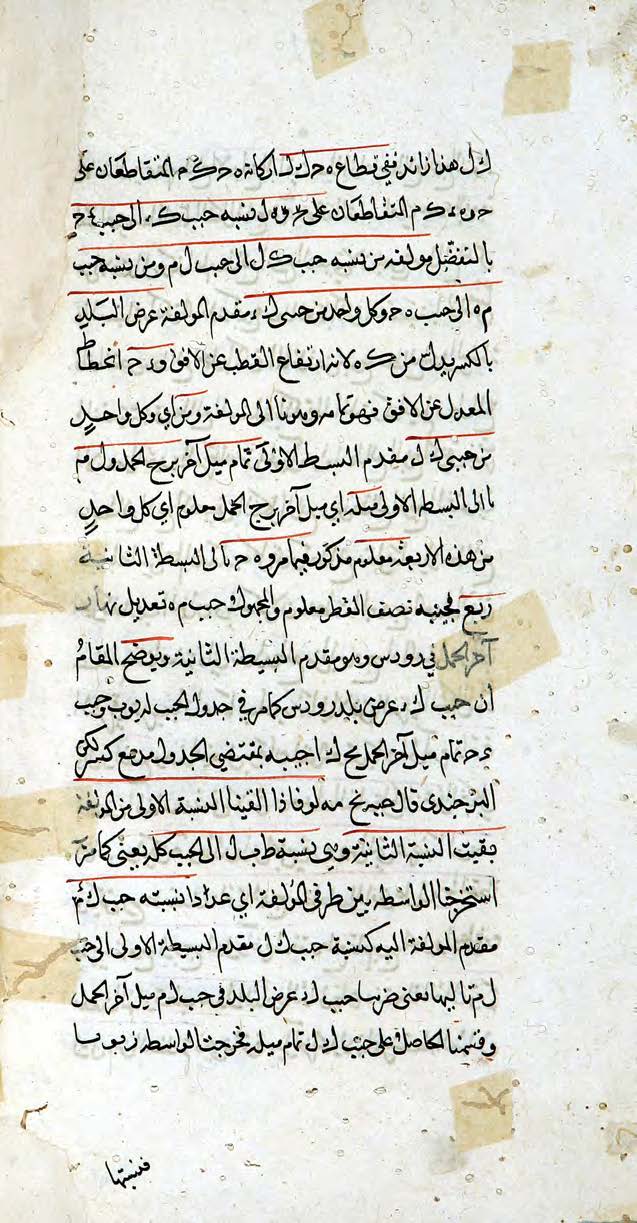 ك ل هذا زائد ففي قطاع ه ح ك ل اركانه ه ح ك م المتقاطعان على
ح ه ء ك م المتقاطعان على نسبه جيب ك ء الى جيب ء ح
بالتفضيل مولفه من نسبه جيب ك ل الى جيب ل م ومن نسبه جيب
م ه الى جيب ه ح وكل واحد من جيبى ك ء مقدم المولفة عرض البلد
بالكسر بدل من ك ه لانه ارتفاع القطب عن الافق و ء ح انحطاط
المعدل عن الافق فهو تمامه وهو تا الى المولفة ومن اي وكل واحد
من جيبى ك ل مقدم البسيط الاولى تمام ميل آخر برج الحمل و ل م
تا الى البسيطه الاولى ميله اي ميل آخر برج الحمل معلوم اي كل واحد
من هذه الاربعة معلوم مذكور فيما مر و ه ح تا لى البسيطة الثانية
ربع فجيبه نصف القطر معلوم والمجهول جيب م ه تعديل نهار
آخر الحمل في رودس وهو مقدم البسيطة الثانية ويوضح المقام
ان جيب ك ء عرض بلد رودس كما مر في جدول الجيب وجيب
ء ح تمام ميل آخر الحمل اجيبه بمقتضى الجدول مع كسر لكن
البرجندى قال جيبه فاذا القينا النسبة الاولى من المولفة
بقيت النسبة الثانية وهي نسبة الى الجيب كله يعنى كما مر
استخرجنا الواسطه بين طرفى المولفة اي عددا نسبته جيب ك ء
مقدم المولفة اليه كنسبة جيب ك ل مقدم البسيطة الاولى الى جيب
ل م تاليها يعنى ضربنا جيب ك ء عرض البلد فى جيب ل م ميل آخر الحمل
وقسمنا الحاصل على جيب ك ل تمام ميله فخرجت الواسطه
فنسبتها